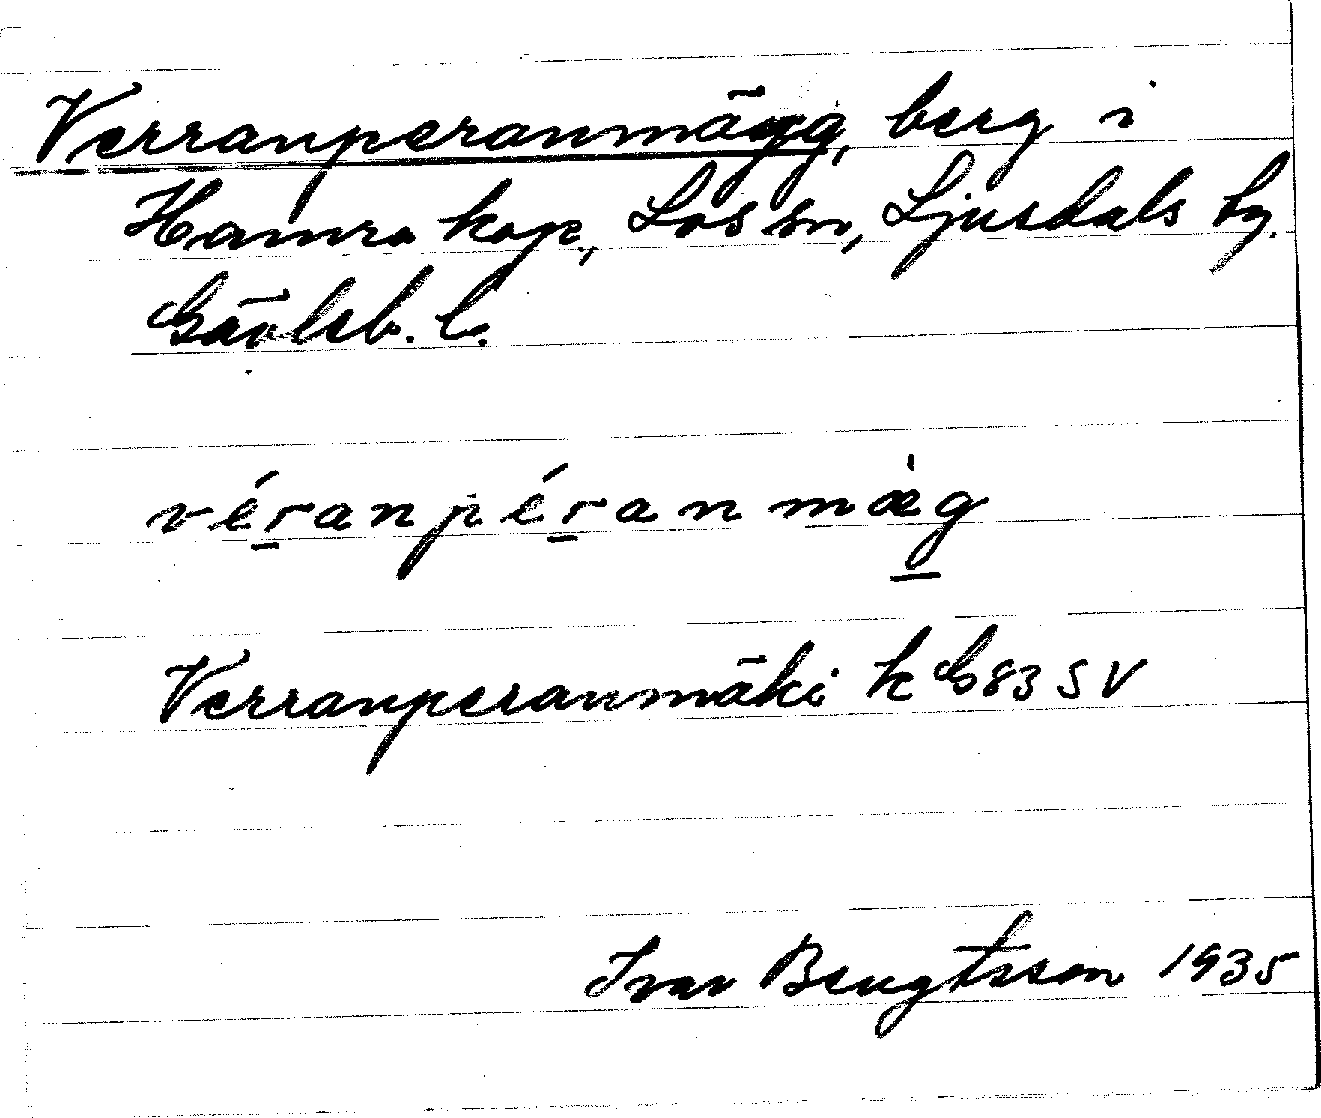 Verranperanmägg, berg i
Hamra kap, Los sn, Ljusdals tg.
Gävleb. l.
véranpéranmæ̀g
Verranperanmäki k G83 SV
Ivar Bengtsson 1935